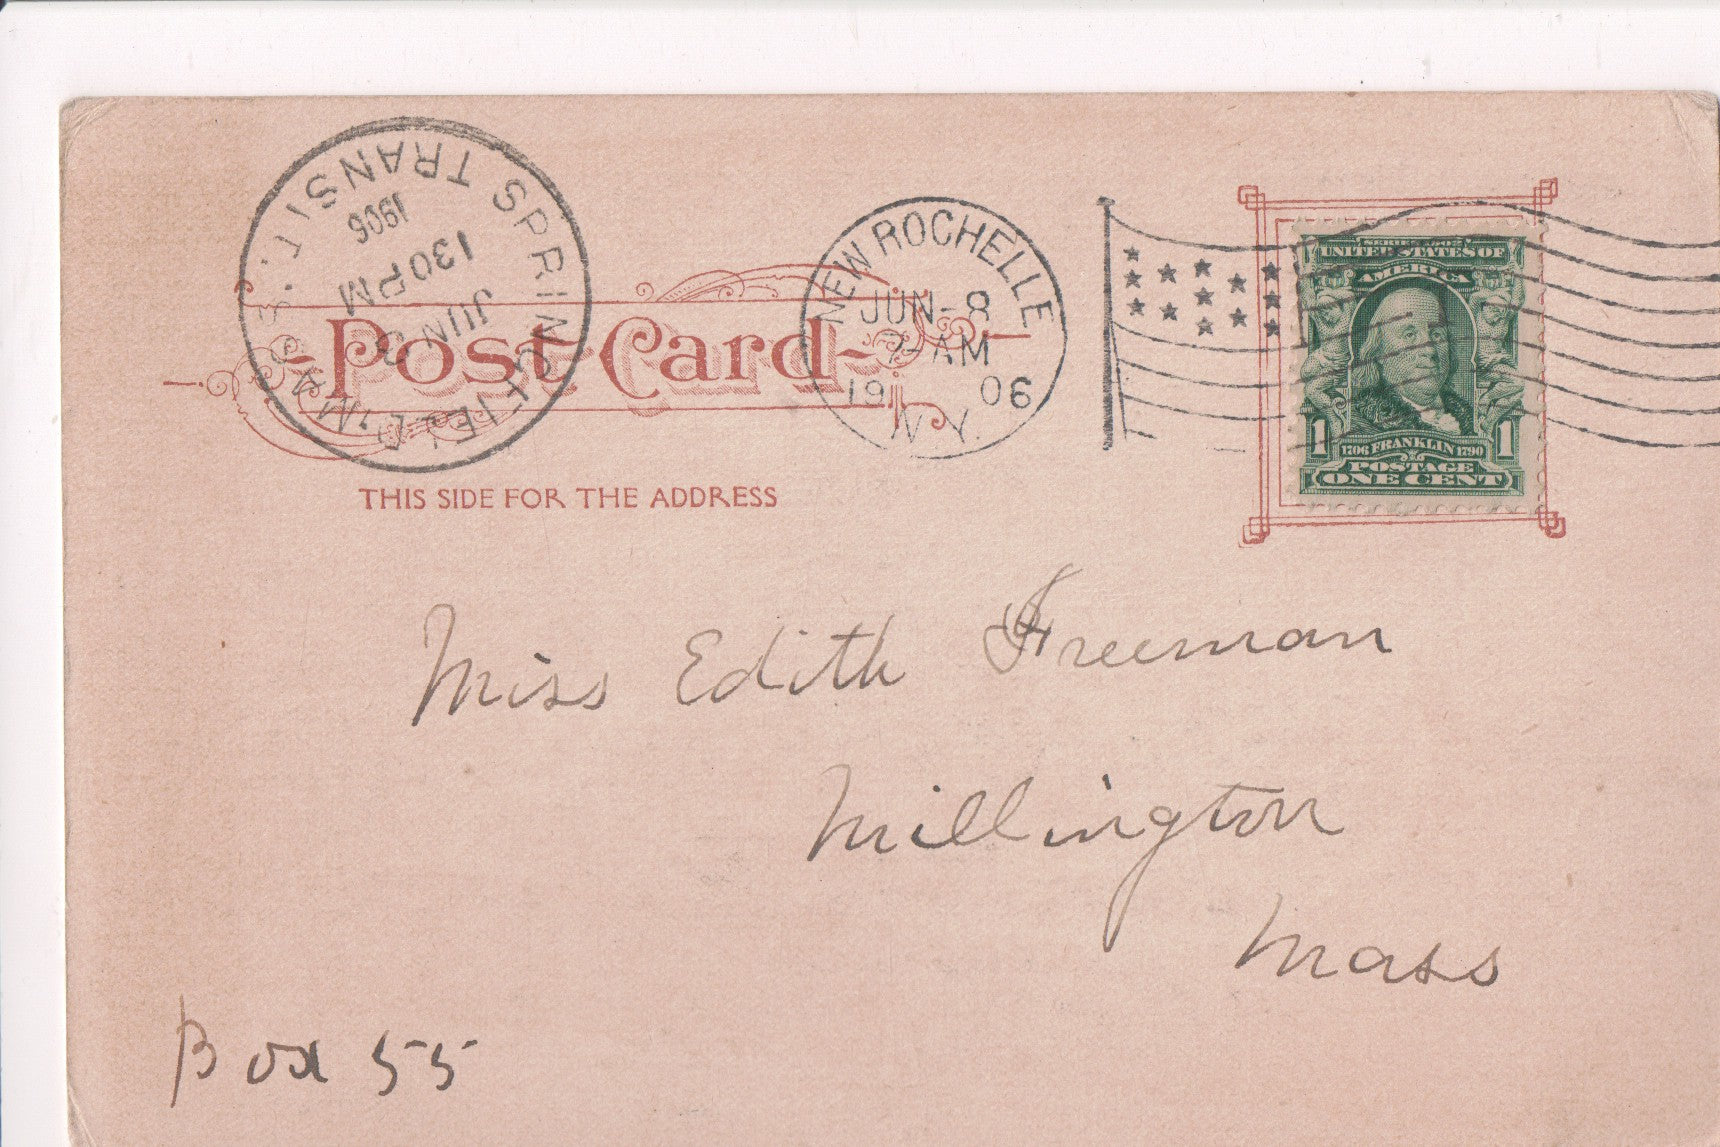 SPRINGFIELD, MASS.
TRANSIT.
JUN 8
1 30 PM
1906
NEW ROCHELLE
JUN-8
7-AM
1906
N.Y.
SERIES 1902
UNITED STATES OF
AMERICA
1706 FRANKLIN 1790
1 POSTAGE 1
ONE CENT
Post Card
THIS SIDE FOR THE ADDRESS
Miss Edith Freeman
Millington
Mass
Box 55